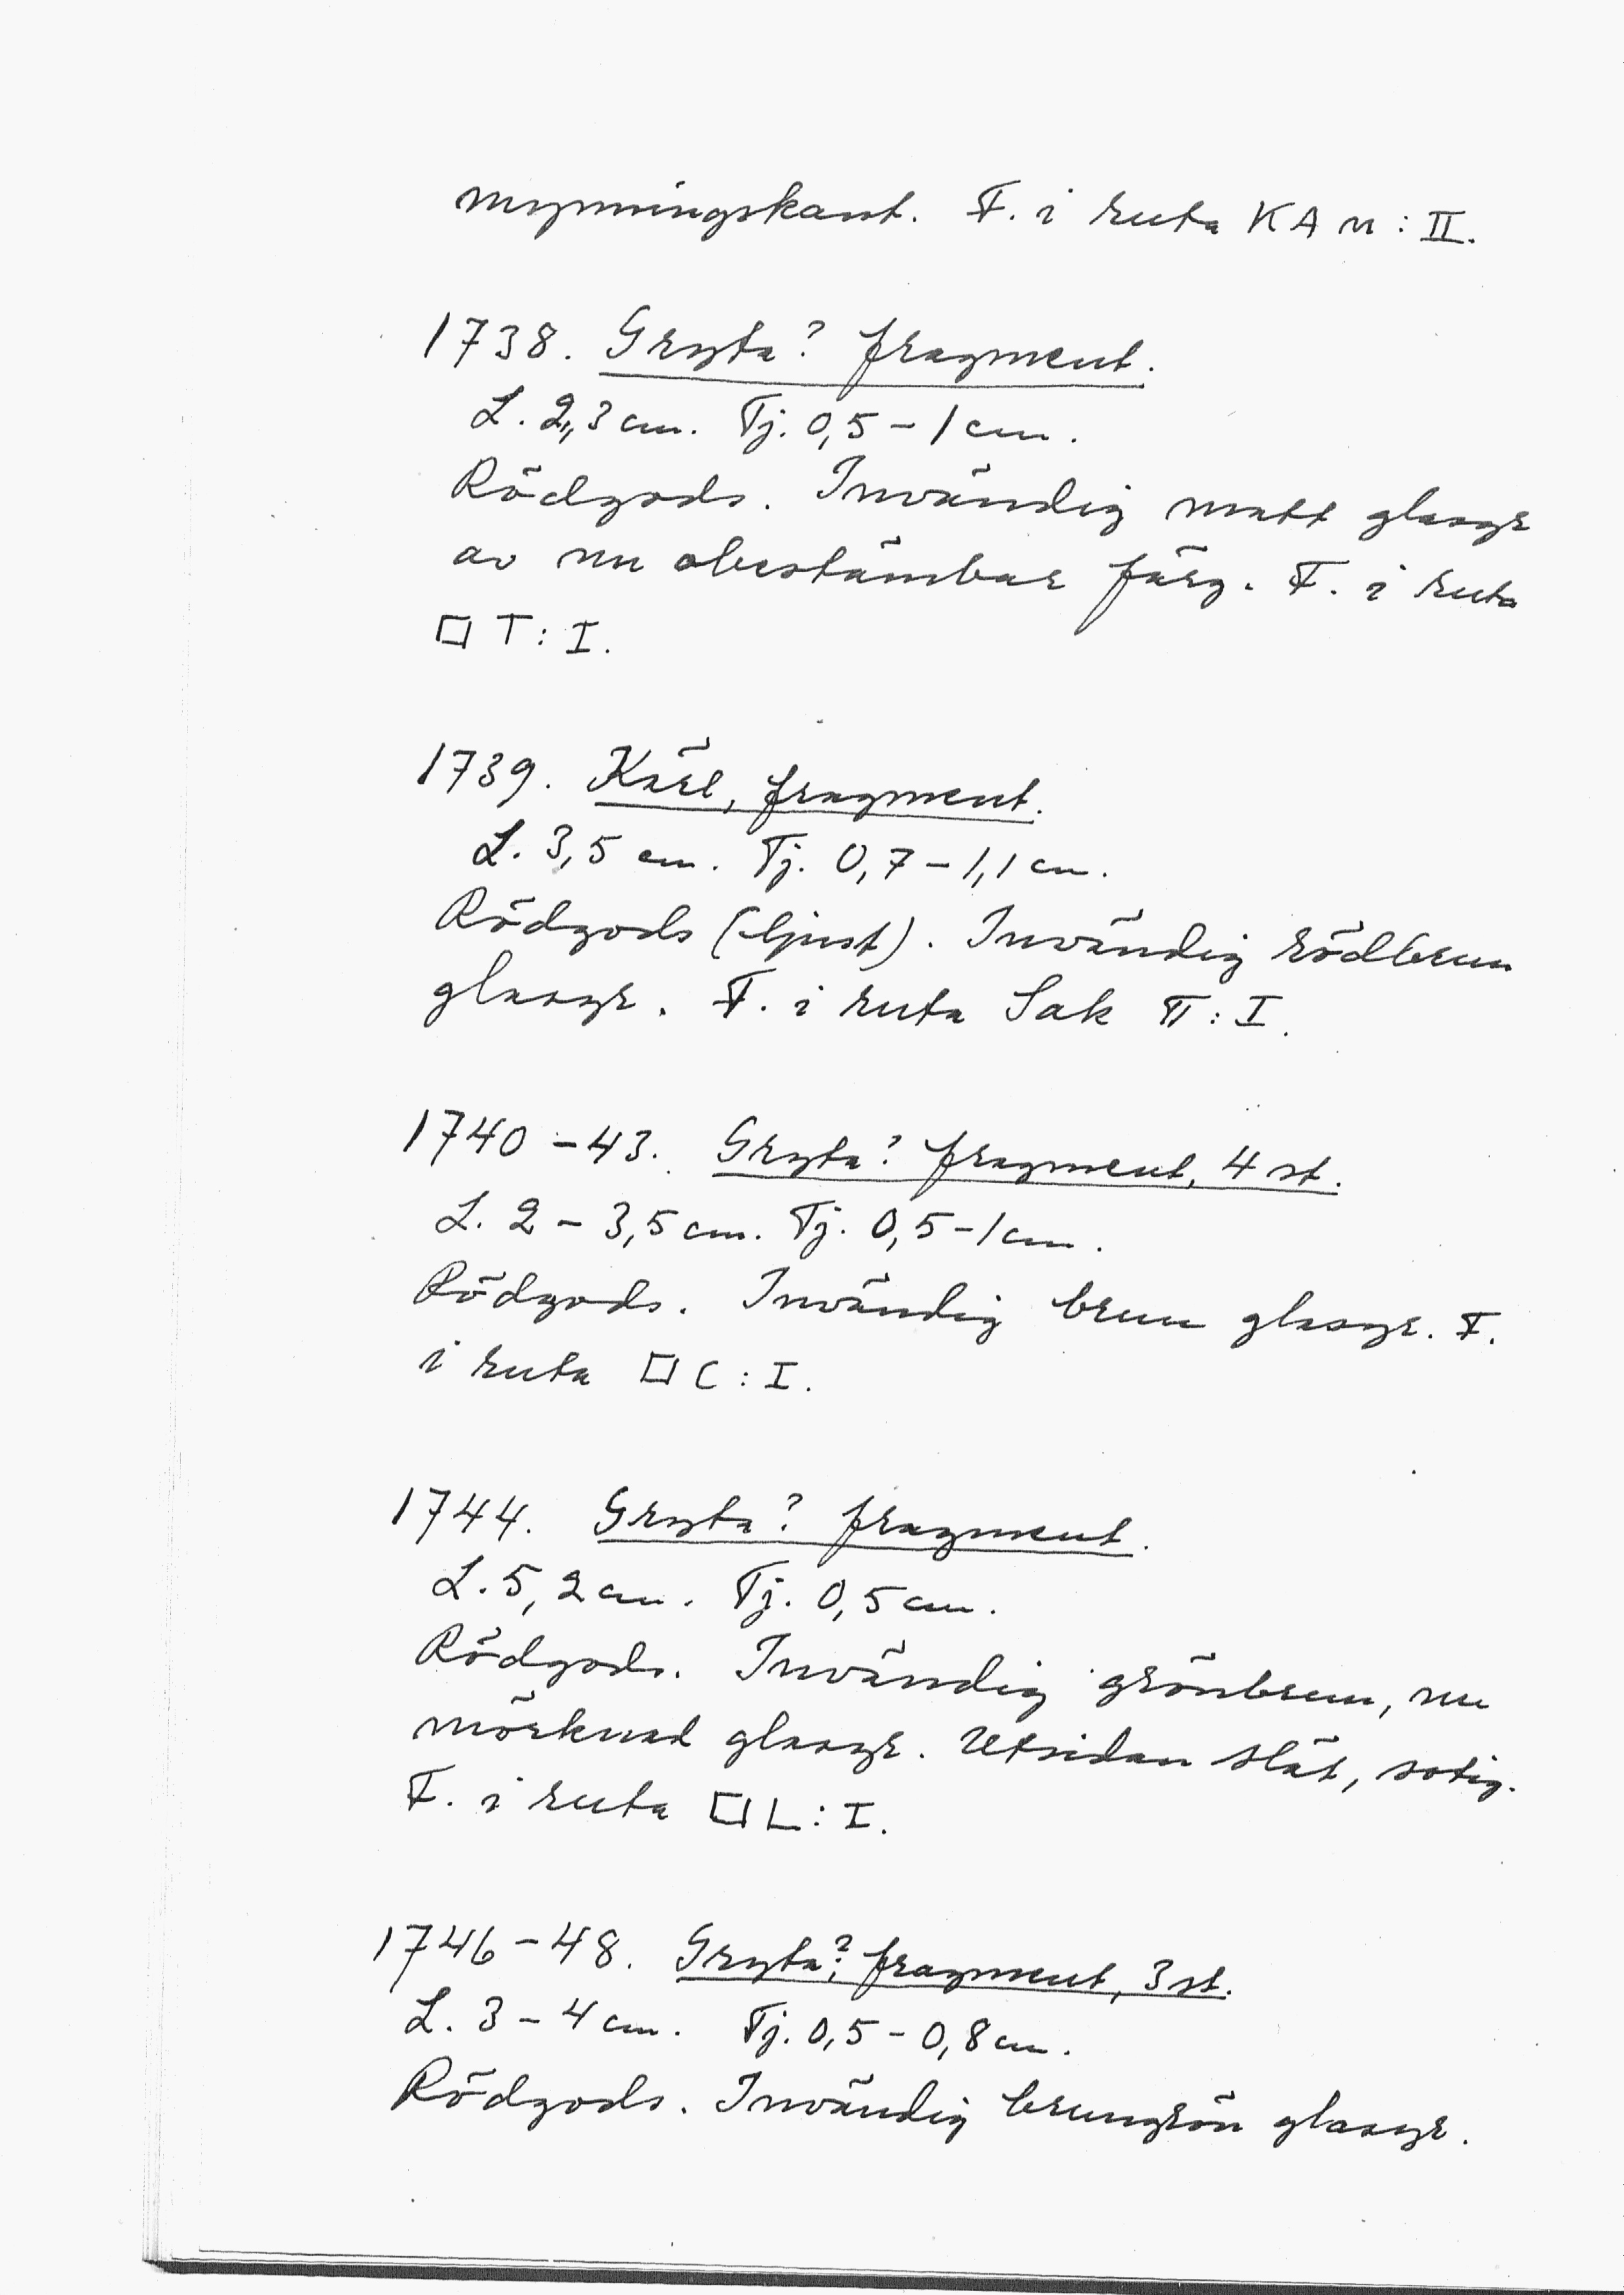 mynningskant. F. i ruta KA n : II.
1738. Gryta? fragment.
L. 2,3 cm. Tj. 0,5 – 1 cm.
Rödgods. Invändig matt glasyr
av nu obestämbar färg. F. i ruta
□ T : I.
1739. Kärl, fragment.
L. 3,5 cm. Tj. 0,7 – 1,1 cm.
Rödgods (ljust). Invändig rödbrun
glasyr. F. i ruta Sak π : I.
1740 – 43. Gryta? fragment, 4 st.
L. 2 – 3,5 cm. Tj. 0,5 – 1 cm.
Rödgods. Invändig brun glasyr. F.
i ruta □ C : I.
1744. Gryta? fragment.
L. 5,2 cm. Tj. 0,5 cm.
Rödgods. Invändig grönbrun, nu
mörknad glasyr. Utsidan slät, sotig.
F. i ruta □ L : I.
1746 – 48. Gryta?, fragment, 3 st.
L. 3 – 4 cm. Tj. 0,5 – 0,8 cm.
Rödgods. Invändig brungrön glasyr.